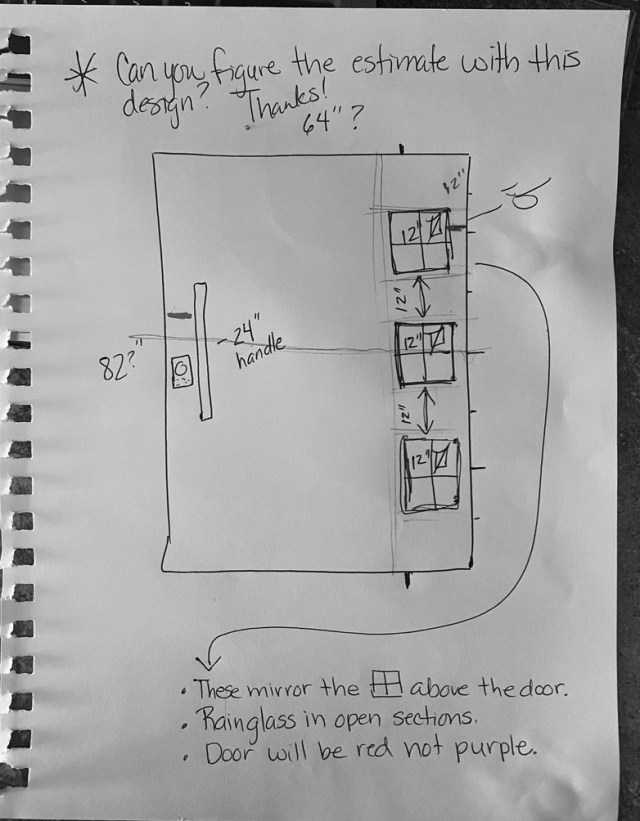 * Can you figure the estimate with this
design? Thanks!
64"?
12"
6"
12"
12"
12"
12"
12"
82?"
24"
handle
• These mirror the above the door.
• Rainglass in open sections.
• Door will be red not purple.